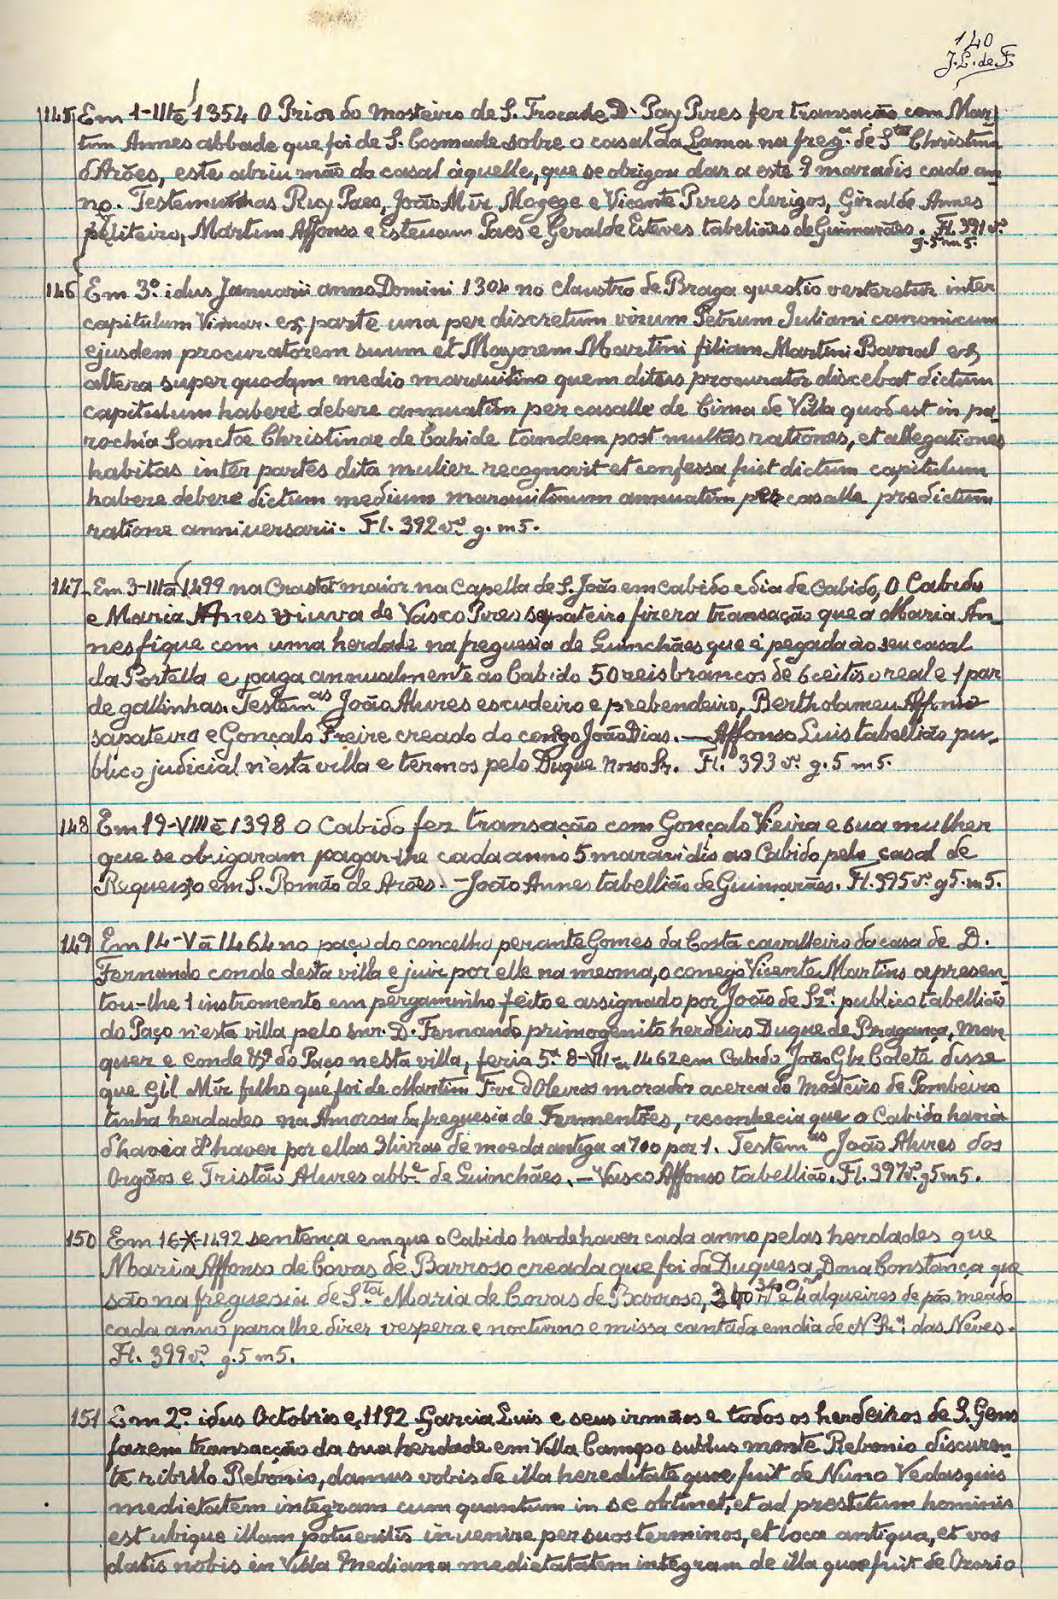 140
J. L. de F.
145 Em 1-III-e 1354 O Prior do mosteiro de S. Trocade D. Pay Pires fez transação com Mar-
tim Annes abbade que foi de S. Cosmade sobre o casal da Lama na freg.ª de S.ta Christina
d'Arões, este abriu mão do casal áquelle, que se obrigou dar a este 9 maradis cada an-
no. Testemunhas Ruy Paes, João Mĩz Magege e Vicente Pires clerigos, Giralde Annes
peliteiro, Martim Affonso e Estevam Paes e Geralde Esteves tabeliães de Guimarães. Fl. 391 v.º
g. 5 m 5.
146 Em 3.º idus Januarii anno Domini 1304 no claustro de Braga questio verteretur inter
capitulum Vimar. ex parte una per discretum virum Petrum Juliani canonicum
ejusdem procuratorem suum et Mayorem Martini filiam Martini Barral ex
altera super quodam medio marauitino quem ditus procurator discebat dictum
capitulum habere debere annuatim per casalle de Cima de Villa quod est in pa-
rochia Sanctae Christinae de Cahide tandem post multas rationes, et allegationes
habitas inter partes dita mulier recognovit et confessa fuit dictum capitulum
habere debere dictum medium marauitinum annuatim per casalle predictum
ratione anniversarii. Fl. 392 v.º g. m 5.
147 Em 3-III-a 1499 na Crasta maior na Capella de S. João em cabido e dia de Cabido, O Cabido
e Maria Anes viuva de Vasco Pires sapateiro fizera transação que a Maria An-
nes fique com uma herdade na freguesia de Guinchães que é pegada ao seu casal
da Portella e paga annualmente ao Cabido 50 reis brancos de 6 ceitis o real e 1 par
de gallinhas. Testem.as João Alures escudeiro e prebendeiro, Bertholameu Affonso
sapateiro e Gonçalo Freire creado do conego João Dias. — Affonso Luis tabellião pu-
blico judicial n'esta villa e termos pelo Duque nosso Sr. Fl. 393 v.º g. 5 m 5.
148 Em 19-VIII-e 1398 o Cabido fez transação com Gonçalo Vieira e sua mulher
que se obrigaram pagar-lhe cada anno 5 maravidis ao Cabido pelo casal de
Requeixo em S. Romão de Arões. — João Annes tabellião de Guimarães. Fl. 395 v.º g 5. m 5.
149 Em 14-V-a 1464 no paço do concelho perante Gomes da Costa cavalleiro da casa de D.
Fernando conde desta villa e juiz por elle na mesma, o conego Vicente Martins apresen-
tou-lhe 1 instromento em pergaminho feito e assignado por João de Sz.ª publico tabellião
do Paço n'esta villa pelo snr. D. Fernando primogenito herdeiro Duque de Bragança, Mar-
quez e conde do Paço nesta villa, feria 5.ª 8-VII-a 1462 em Cabido João Glz Colete disse
que Gil Mĩz filho que foi de Martim Frz d'Oleiros morador acerca do mosteiro de Pombeiro
tinha herdades na Amorosa da freguesia de Fermentões, reconhecia que o Cabido havia
d'havia d'haver por ellas 3 livras de moeda antiga a 700 por 1. Testem.as João Alures dos
Orgãos e Tristão Alures abb.e de Guinchães. — Vasco Affonso tabellião. Fl. 397 v.º g 5 m 5.
150 Em 16-X-1492 sentença em que o Cabido ha de haver cada anno pelas herdades que
Maria Affonso de Covas de Barroso creada que foi da Duquesa Dona Constança que
são na freguesia de S.ta Maria de Covas de Barroso, 340 r.s e 4 alqueires de pão meado
cada anno para lhe dizer vespera e nocturno e missa cantada em dia de N. Sr.ª das Neves.
Fl. 399 v.º g. 5 m 5.
151 Em 2.º idus Octobris e, 1192 Garcia Luis e seus irmãos e todos os herdeiros de S. Gens
fazem transacção da sua herdade em Villa Campo subtus monte Rebonio discuren-
te ribulo Rebonio, damus vobis de illa hereditate quae fuit de Nuno Vedasquis
medietatem integram cum quantum in se obtinet, et ad prestitum hominis
est ubique illam potueritis invenire per suos terminos, et loca antiqua, et vos
datis nobis in Villa Mediana medietatem integram de illa quae fuit de Orosio